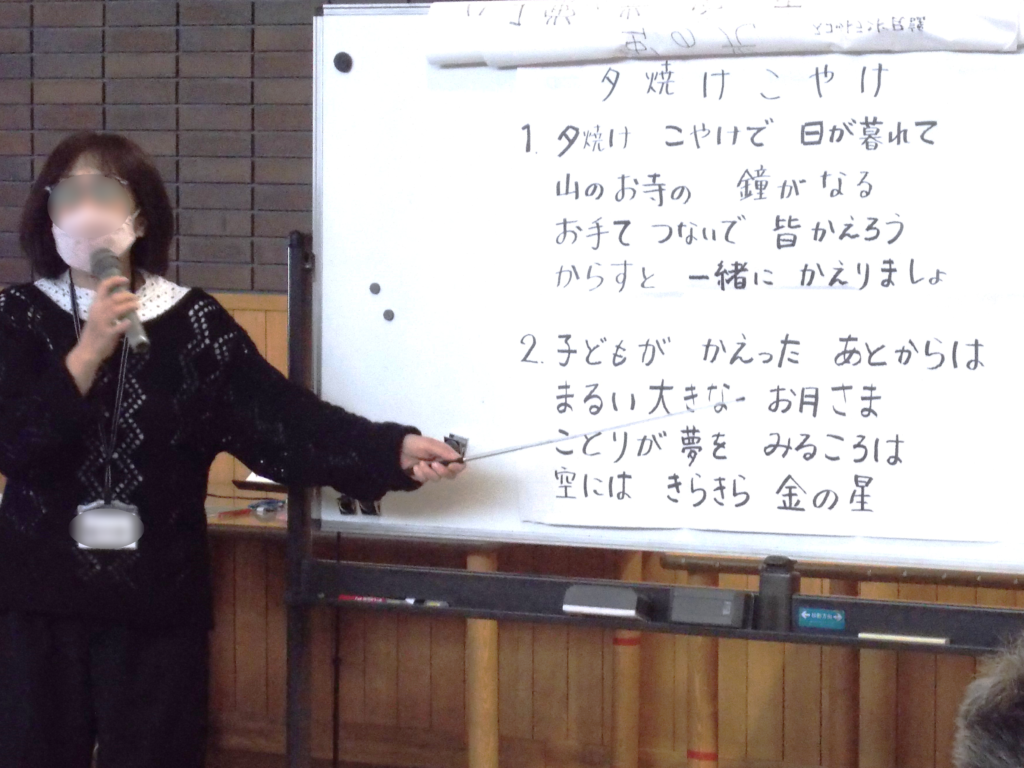 夕焼けこやけ
1. 夕焼け こやけで 日が暮れて
山のお寺の 鐘がなる
お手て つないで 皆かえろう
からすと 一緒に かえりましょ
2. 子どもが かえった あとからは
まるい大きな お月さま
ことりが夢を みるころは
空には きらきら 金の星